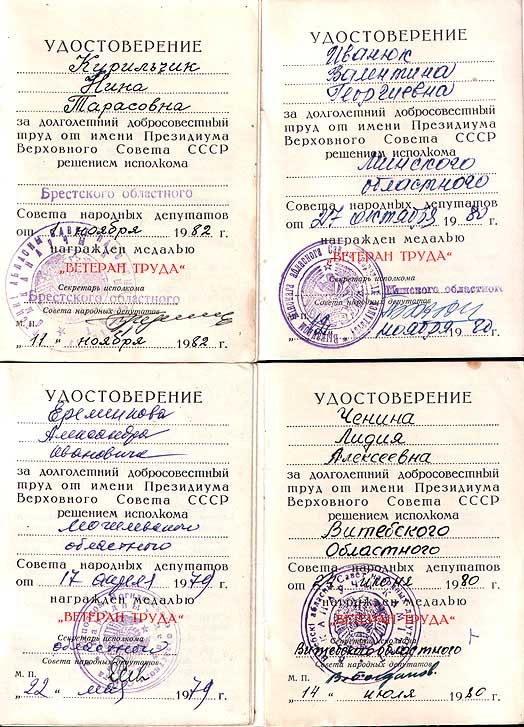 УДОСТОВЕРЕНИЕ
Кирильчик
Нина
Тарасовна
за долголетний добросовестный
труд от имени Президиума
Верховного Совета СССР
решением исполкома
Брестского областного
Совета народных депутатов
от 11 ноября 1982 г.
награжден медалью
„ВЕТЕРАН ТРУДА“
Секретарь исполкома
Брестского областного
Совета народных депутатов
М. П.
„11“ ноября 1982 г.
УДОСТОВЕРЕНИЕ
Иванюк
Валентина
Георгиевна
за долголетний добросовестный
труд от имени Президиума
Верховного Совета СССР
решением исполкома
Минского
областного
Совета народных депутатов
от 27 октября 1980 г.
награжден медалью
„ВЕТЕРАН ТРУДА“
Секретарь исполкома
Минского областного
Совета народных депутатов
М. П.
ноября 1980 г.
УДОСТОВЕРЕНИЕ
Еременкова
Александра
Ивановича
за долголетний добросовестный
труд от имени Президиума
Верховного Совета СССР
решением исполкома
Могилевского
областного
Совета народных депутатов
от 17 апреля 1979 г.
награжден медалью
„ВЕТЕРАН ТРУДА“
Секретарь исполкома
областного
Совета народных депутатов
М. П.
„22“ мая 1979 г.
УДОСТОВЕРЕНИЕ
Ченина
Лидия
Алексеевна
за долголетний добросовестный
труд от имени Президиума
Верховного Совета СССР
решением исполкома
Витебского
Областного
Совета народных депутатов
от июня 1980 г.
награжден медалью
„ВЕТЕРАН ТРУДА“
Секретарь исполкома
Витебского областного
Совета народных депутатов
М. П.
„14“ июля 1980 г.